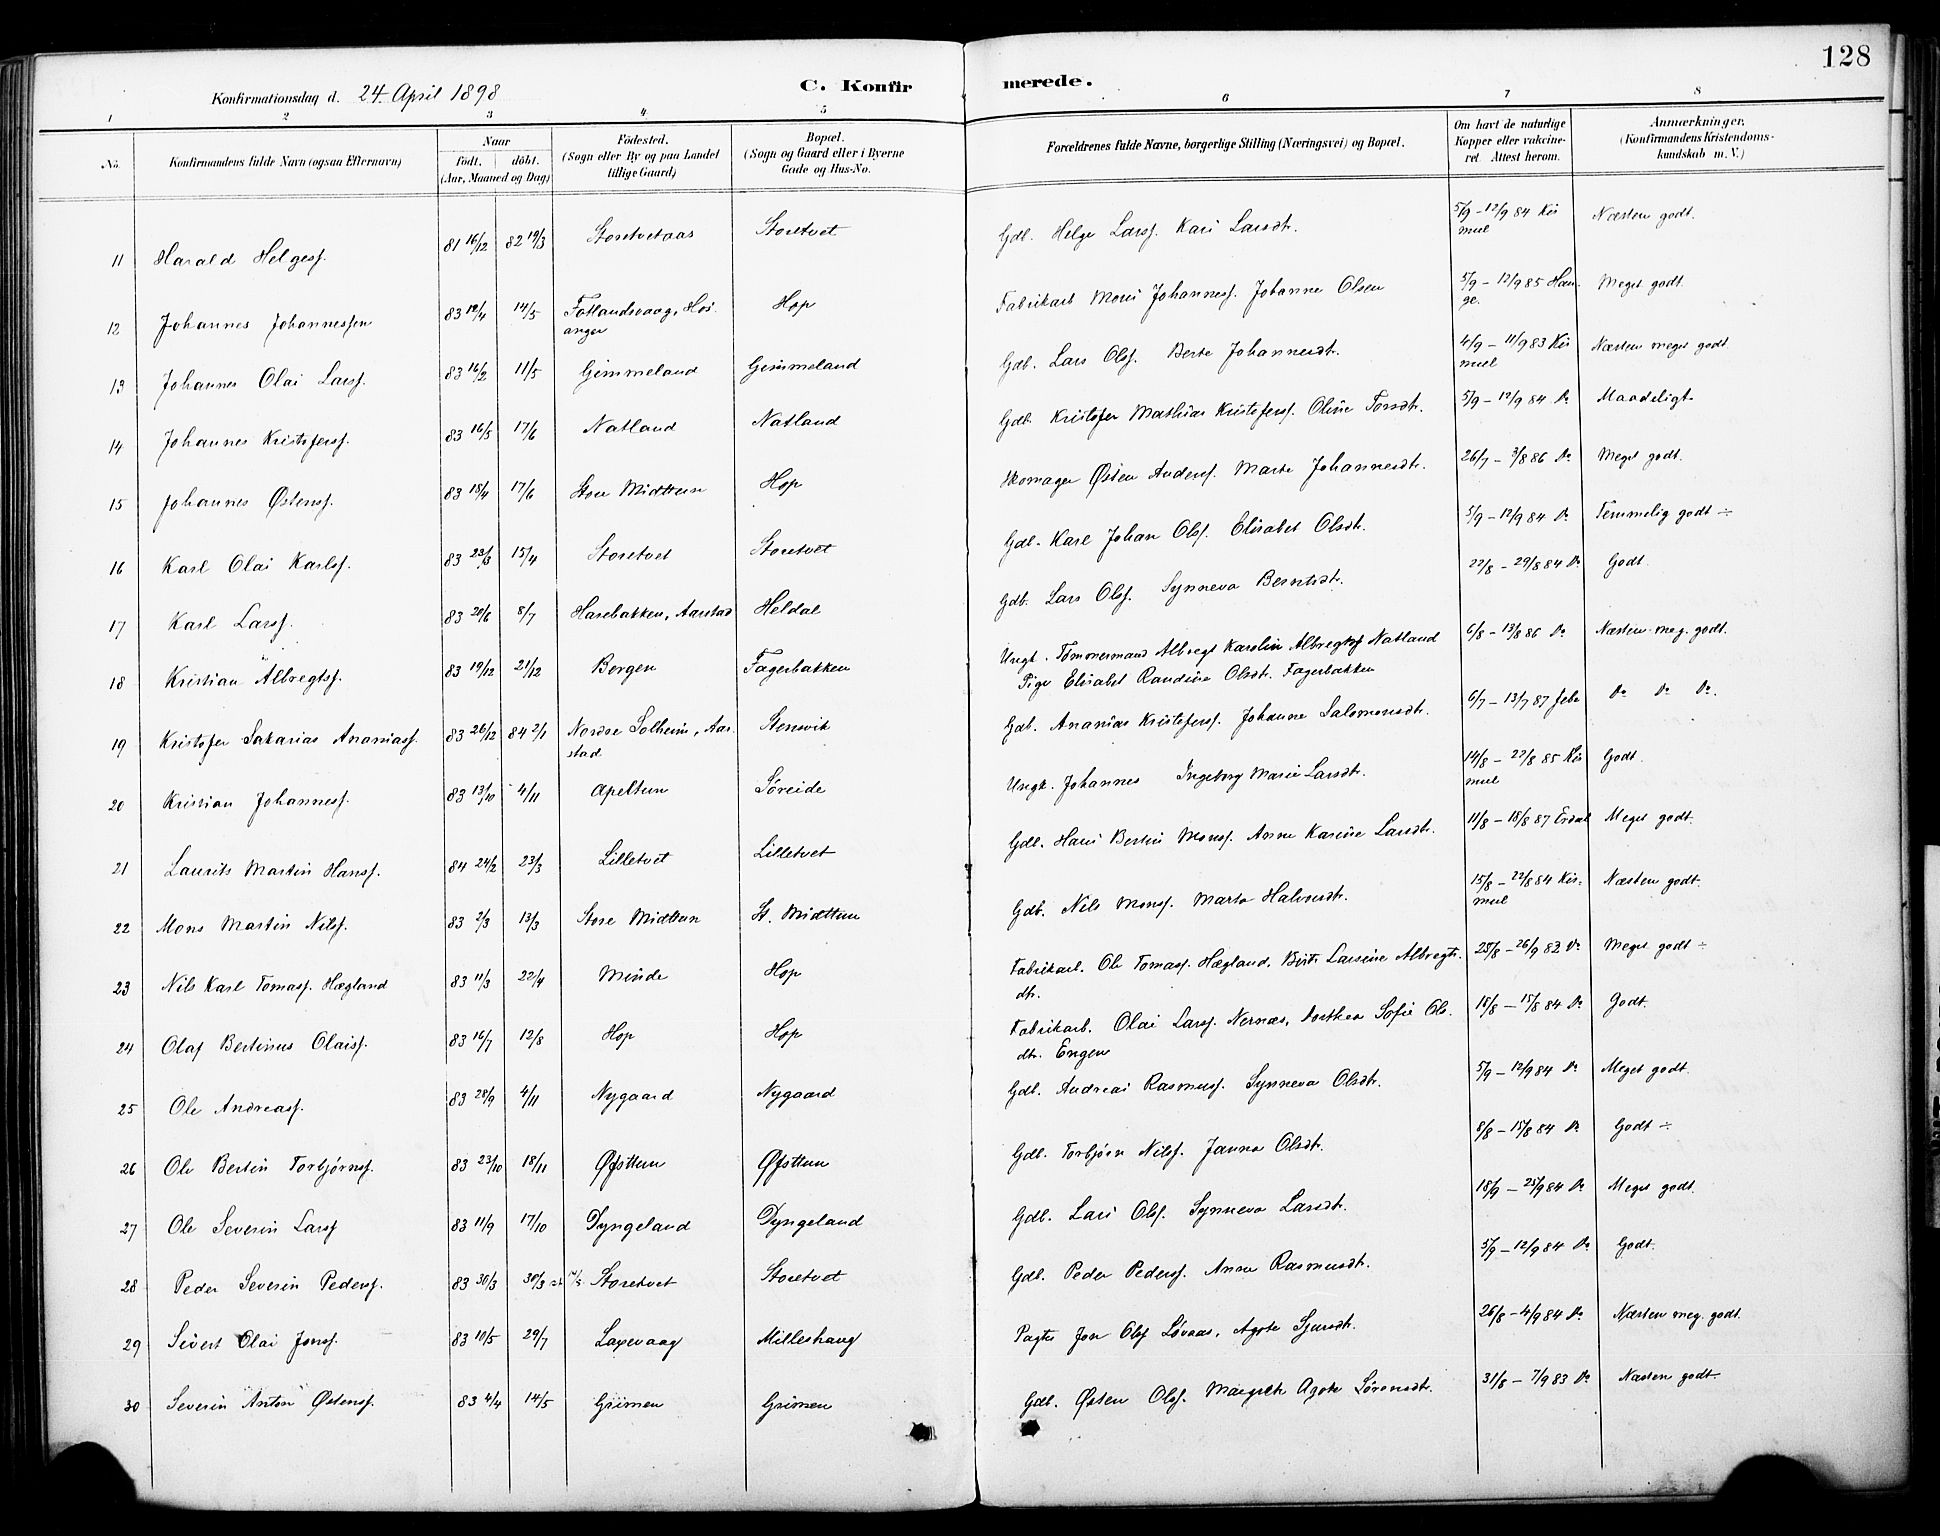 128
Konfirmationsdag d. 24 April 1898 C. Konfirmerede.
1 2 3 4 5 6 7 8
No. Konfirmandens fulde Navn (ogsaa Efternavn) Naar født, døbt. (Aar, Maaned og Dag) Fødested. (Sogn eller By og paa Landet tillige Gaard) Bopæl. (Sogn og Gaard eller i Byerne Gade og Hus-No. Forældrenes fulde Navne, borgerlige Stilling (Næringsvei) og Bopæl. Om havt de naturlige Kopper eller vakcineret. Attest herom. Anmærkninger. (Konfirmandens Kristendomskundskab m. V.)
11 Harald Helgesf. 81 16/12 82 19/3 Storetvetaas Storetvet Gdb. Helge Larsf. Kari Larsdtr. 5/9 – 12/9 84 Kismul Næsten godt.
12 Johannes Johannessen 83 12/4 14/5 Fotlandsvaag, Hosanger Hop Fabrikarb Mons Johannesf. Johanne Olsen 5/9 – 12/9 85 Hauge. Meget godt.
13 Johannes Olai Larsf. 83 16/2 11/5 Gimmeland Gimmeland Gdb. Lars Olsf. Berte Johannesdtr. 4/9 – 11/9 83 Kismul Næsten meget godt
14 Johannes Kristofersf. 83 16/5 17/6 Natland Natland Gdb. Kristofer Mathias Kristofersf. Oline Torsdtr. 5/9 – 12/9 84 Do Maadeligt
15 Johannes Østensf. 83 18/4 17/6 Store Midttun Hop Skomager Østen Andersf. Marte Johannesdtr. 26/7 – 3/8 86 Do Meget godt.
16 Karl Olai Karlsf. 83 23/3 15/4 Storetvet Storetvet Gdb. Karl Johan Olsf. Elisabet Olsdtr. 5/9 – 12/9 84 Do Temmelig godt ÷
17 Karl Larsf. 83 20/6 8/7 Harebakken, Aarstad Heldal Gdb. Lars Olsf. Synneva Berntsdtr. 22/8 – 29/8 84 Do Godt
18 Kristian Albregtsf. 83 19/12 21/12 Bergen Fagerbakken Ungk. Tømmermand Albregt Karolin Albregtsf Natland Pige Elisabet Randine Olsdtr. Fagerbakken 6/8 – 13/8 86 Do Næsten meg. godt.
19 Kristofer Sakarias Ananiasf. 83 26/12 84 2/1 Nordre Solheim, Aarstad Stensvik Gdb. Ananias Kristofersf. Johanne Salomonsdtr. 6/7 – 13/7 87 Do Do Do.
20 Kristian Johannesf. 83 13/10 4/11 Apeltun Søreide Ungk. Johannes Ingeborg Marie Larsdtr. 14/8 – 22/8 85 Kismul Godt.
21 Laurits Martin Hansf. 84 24/2 23/3 Lilletvet Lilletvet Gdb. Hans Bertin Monsf. Anne Karine Larsdtr. 11/8 – 18/8 87 Erdal Meget godt.
22 Mons Martin Nilsf. 83 2/3 13/3 Store Midttun St. Midttun Gdb. Nils Monsf. Marta Halvordtr. 15/8 – 22/8 84 Kismul Næsten godt.
23 Nils Karl Tomasf. Hægland 83 11/3 22/4 Minde Hop Fabrikarb. Ole Tomasf. Hægland. Birt. Larsine Albregtsdtr. 25/8 – 26/9 83 Do Meget godt ÷
24 Olaf Bertinus Olaisf. 83 16/7 12/8 Hop Hop Fabrikarb. Olai Larsf. Nernæs, Dorthea Sofie Olsdtr. Engen 18/8 – 15/8 84 Do Godt.
25 Ole Andreasf. 83 28/9 4/11 Nygaard Nygaard Gdb. Andreas Rasmusf. Synneva Olsdtr. 5/9 – 12/9 84 Do Meget godt.
26 Ole Bertin Torbjørnsf. 83 23/10 18/11 Øfsttun Øfsttun Gdb. Torbjørn Nilsf. Janna Olsdtr. 8/8 – 15/8 84 Do Godt ÷
27 Ole Severin Larsf 83 11/9 17/10 Dyngeland Dyngeland Gdb. Lars Olsf. Synneva Larsdtr. 18/9 – 25/9 84 Do Meget godt.
28 Peder Severin Pedersf. 83 30/3 30/3 Storetvet Storetvet Gdb. Peder Pedersf. Anna Rasmusdtr. 5/9 – 12/9 84 Do Godt.
29 Sivert Olai Jonsf. 83 10/5 29/7 Laxevaag Milleshaug Pagter Jon Olsf Løvaas, Agate Sjursdtr. 26/8 – 4/9 84 Do Næsten meg. godt.
30 Severin Anton Østensf. 83 4/4 14/5 Grimen Grimen Gdb. Østen Olsf. Margrete Agate Sørensdtr. 31/8 – 7/9 83 Do Næsten godt.